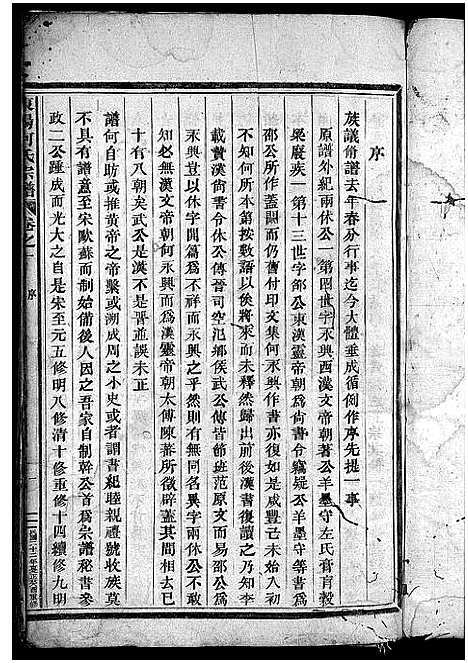 序
族議脩譜去年春分行事迄今大體垂成循例作序先提一事
原譜外紀兩休公一第四世字永興西漢文帝朝著公羊墨守左氏膏肓穀
梁廢疾一第十三世字邵公東漢靈帝朝爲尚書令竊疑公羊墨守等書爲
邵公所作蓋闕而仍舊付印文集何永興作書亦復如是咸豐己未始入初
不知何所本第按數語以俟將來而未釋然歸出前後漢書復讀之乃知李
載贊漢尚書令休公傳晉司空氾鄉侯武公傳皆節班范原文而易邵公爲
永興豈以休字開篇爲不祥而永興之乎然則有無同名異字兩休公不敢
知必無漢文帝朝何永興而可矣爲漢靈帝朝太傅陳蕃所徵辟蓋其間相去已
十有八朝矣武公是漢不是晉並誤未正
譜何自昉或推黃帝之帝繫或溯成周之小史或者謂書紀睦親禮號收族莫
不具有譜意至宋歐蘇而制始備後人因之吾家自制幹公首爲宗譜秘書參
政二公踵成而光大之自是宋至元五修明八修清十修重修十四續修九明
東陽何氏宗譜 卷之一 序 一